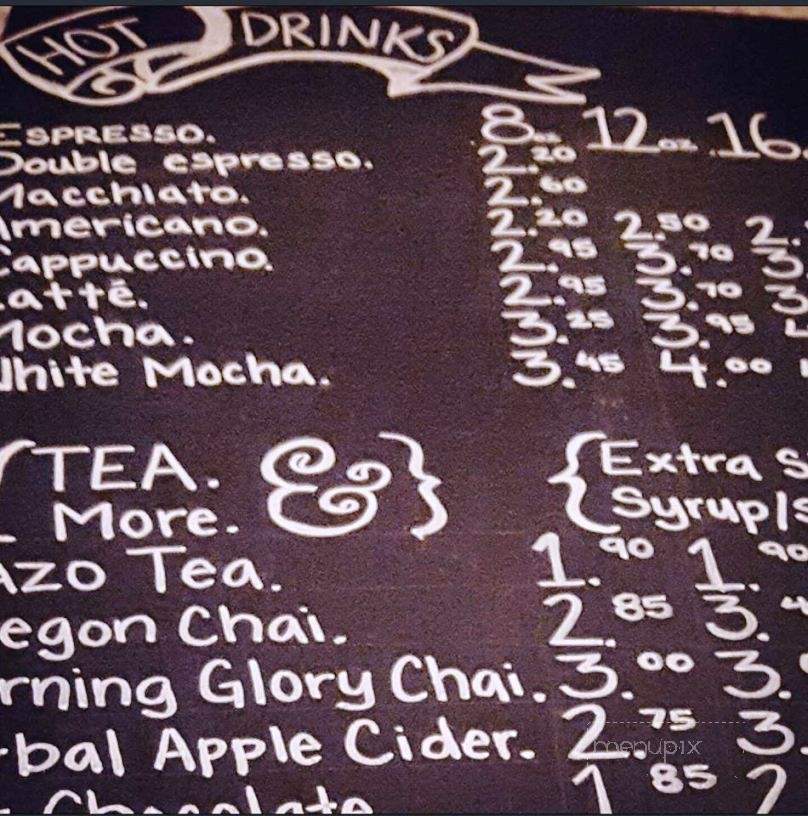 HOT DRINKS
8oz 12oz .16.
ESPRESSO. 2.20
Double espresso. 2.60
Macchiato. 2.20 2.50 2.
Americano. 2.95 3.70 3
Cappuccino. 2.95 3.70 3
Latté. 3.25 3.95
Mocha. 3.45 4.00
White Mocha.
{TEA. & }
More.
{Extra S
Syrup/s
AZO Tea. 1.90 1.90
egon Chai. 2.85 3.
rning Glory Chai. 3.00 3.
bal Apple Cider. 2.75 3.
Chocolate 1.85 2
menupix